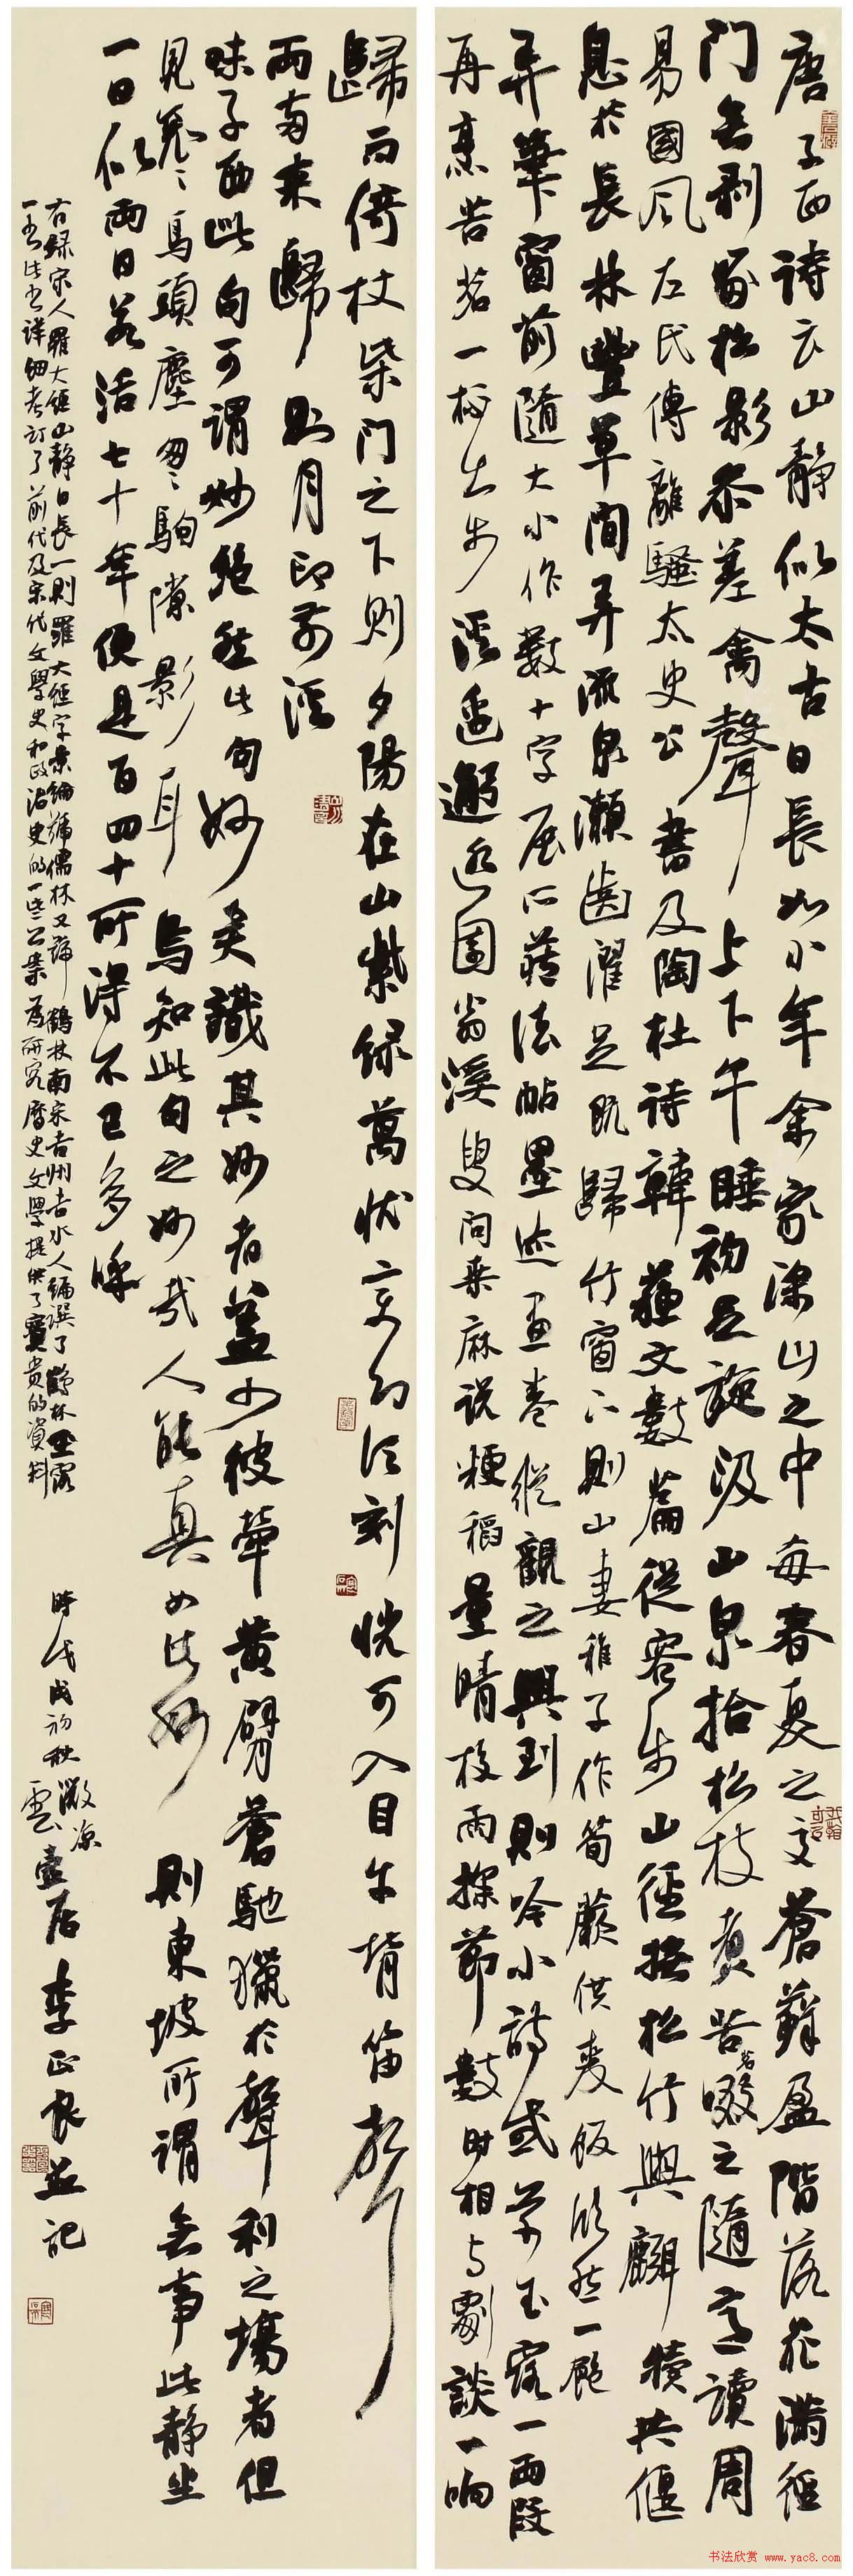 唐子西詩云山静似太古日長如小年余家深山之中每春夏之交蒼蘚盈階落花滿徑
門無剥啄松影參差禽聲上下午睡初足旋汲山泉拾松枝煮苦茗啜之隨意讀周
易國風左氏傳離騷太史公書及陶杜詩韓蘇文數篇從容步山徑撫松竹與麛犢共偃
息於長林豐草間弄流泉漱齒濯足既歸竹窗下則山妻稚子作筍蕨供麦飯欣然一飽
弄筆窗前隨大小作數十字展所藏法帖墨迹畫卷縱觀之興到則吟小詩或草玉露一兩段
再烹苦茗一杯出步溪邊邂逅園翁溪叟問桑麻説粳稻量晴校雨探節數時相与劇談一晌
歸而倚杖柴門之下則夕陽在山紫緑萬狀変幻頃刻恍可入目牛背笛聲
兩兩来歸則月印前溪
味子西此句可謂妙絶然此句妙矣識其妙者蓋少彼牽黄臂蒼馳獵於聲利之場者但
見衮衮馬頭塵匆匆駒隙影耳烏知此句之妙哉人能真如此妙則東坡所謂無事此静坐
一日似兩日若活七十年便是百四十所得不已多呼
右録宋人羅大經山静日長一則羅大經字景綸號儒林又號鶴林南宋吉州吉水人編撰了鶴林玉露
一書此書詳細考訂了前代及宋代文學史和政治史的一些公案為研究歷史文學提供了寶贵的資料
時戊戌初秋微凉
雲壺居李正良并記
书法欣赏 www.yac8.com